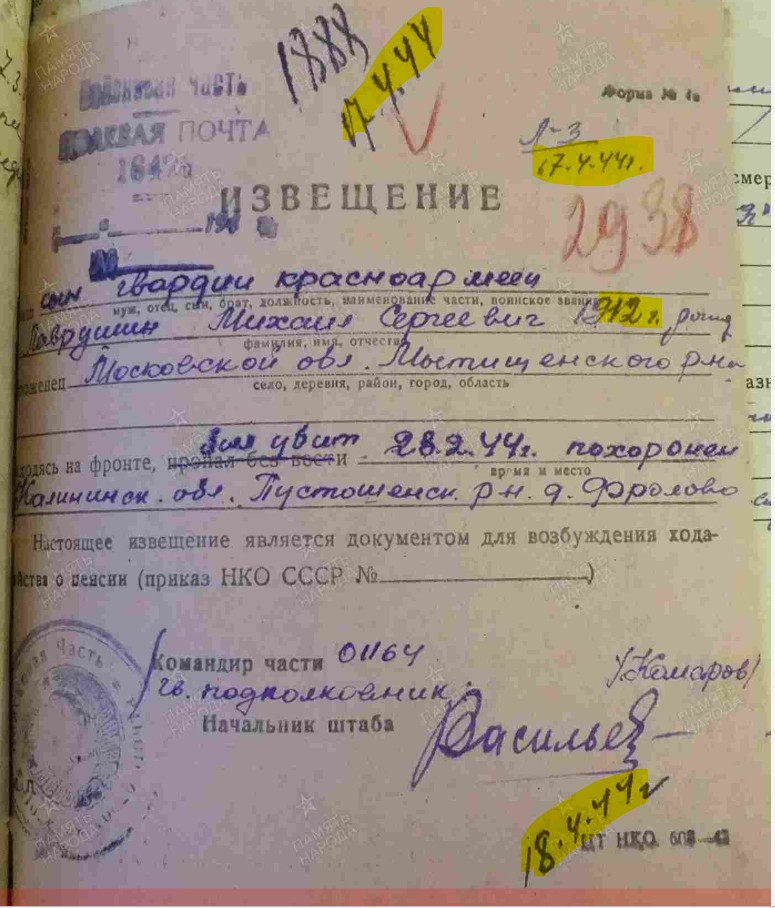 1888
17.4.44
Форма № 4а
Войсковая часть
ПОЛЕВАЯ ПОЧТА
Л-3
17.4.44г.
ИЗВЕЩЕНИЕ
194 г.
2938
сын гвардии красноармеец
муж, отец, сын, брат, должность, наименование части, воинское звание
Лаврушин Михаил Сергеевич 1912 г. рожд
фамилия, имя, отчество
роженец Московской обл. Мытищенского р-на
село, деревня, район, город, область
был убит 28.2.44г. похоронен
ходясь на фронте, пропал без вести
время и место
Калининск. обл. Пустошенск. р-н. д. Фролово
Настоящее извещение является документом для возбуждения хода-
йства о пенсии (приказ НКО СССР № )
Командир части 01164
гв. подполковник (Комаров)
Начальник штаба Васильев
18.4.44г
ЦТ НКО.
ПАМЯТЬ НАРОДА